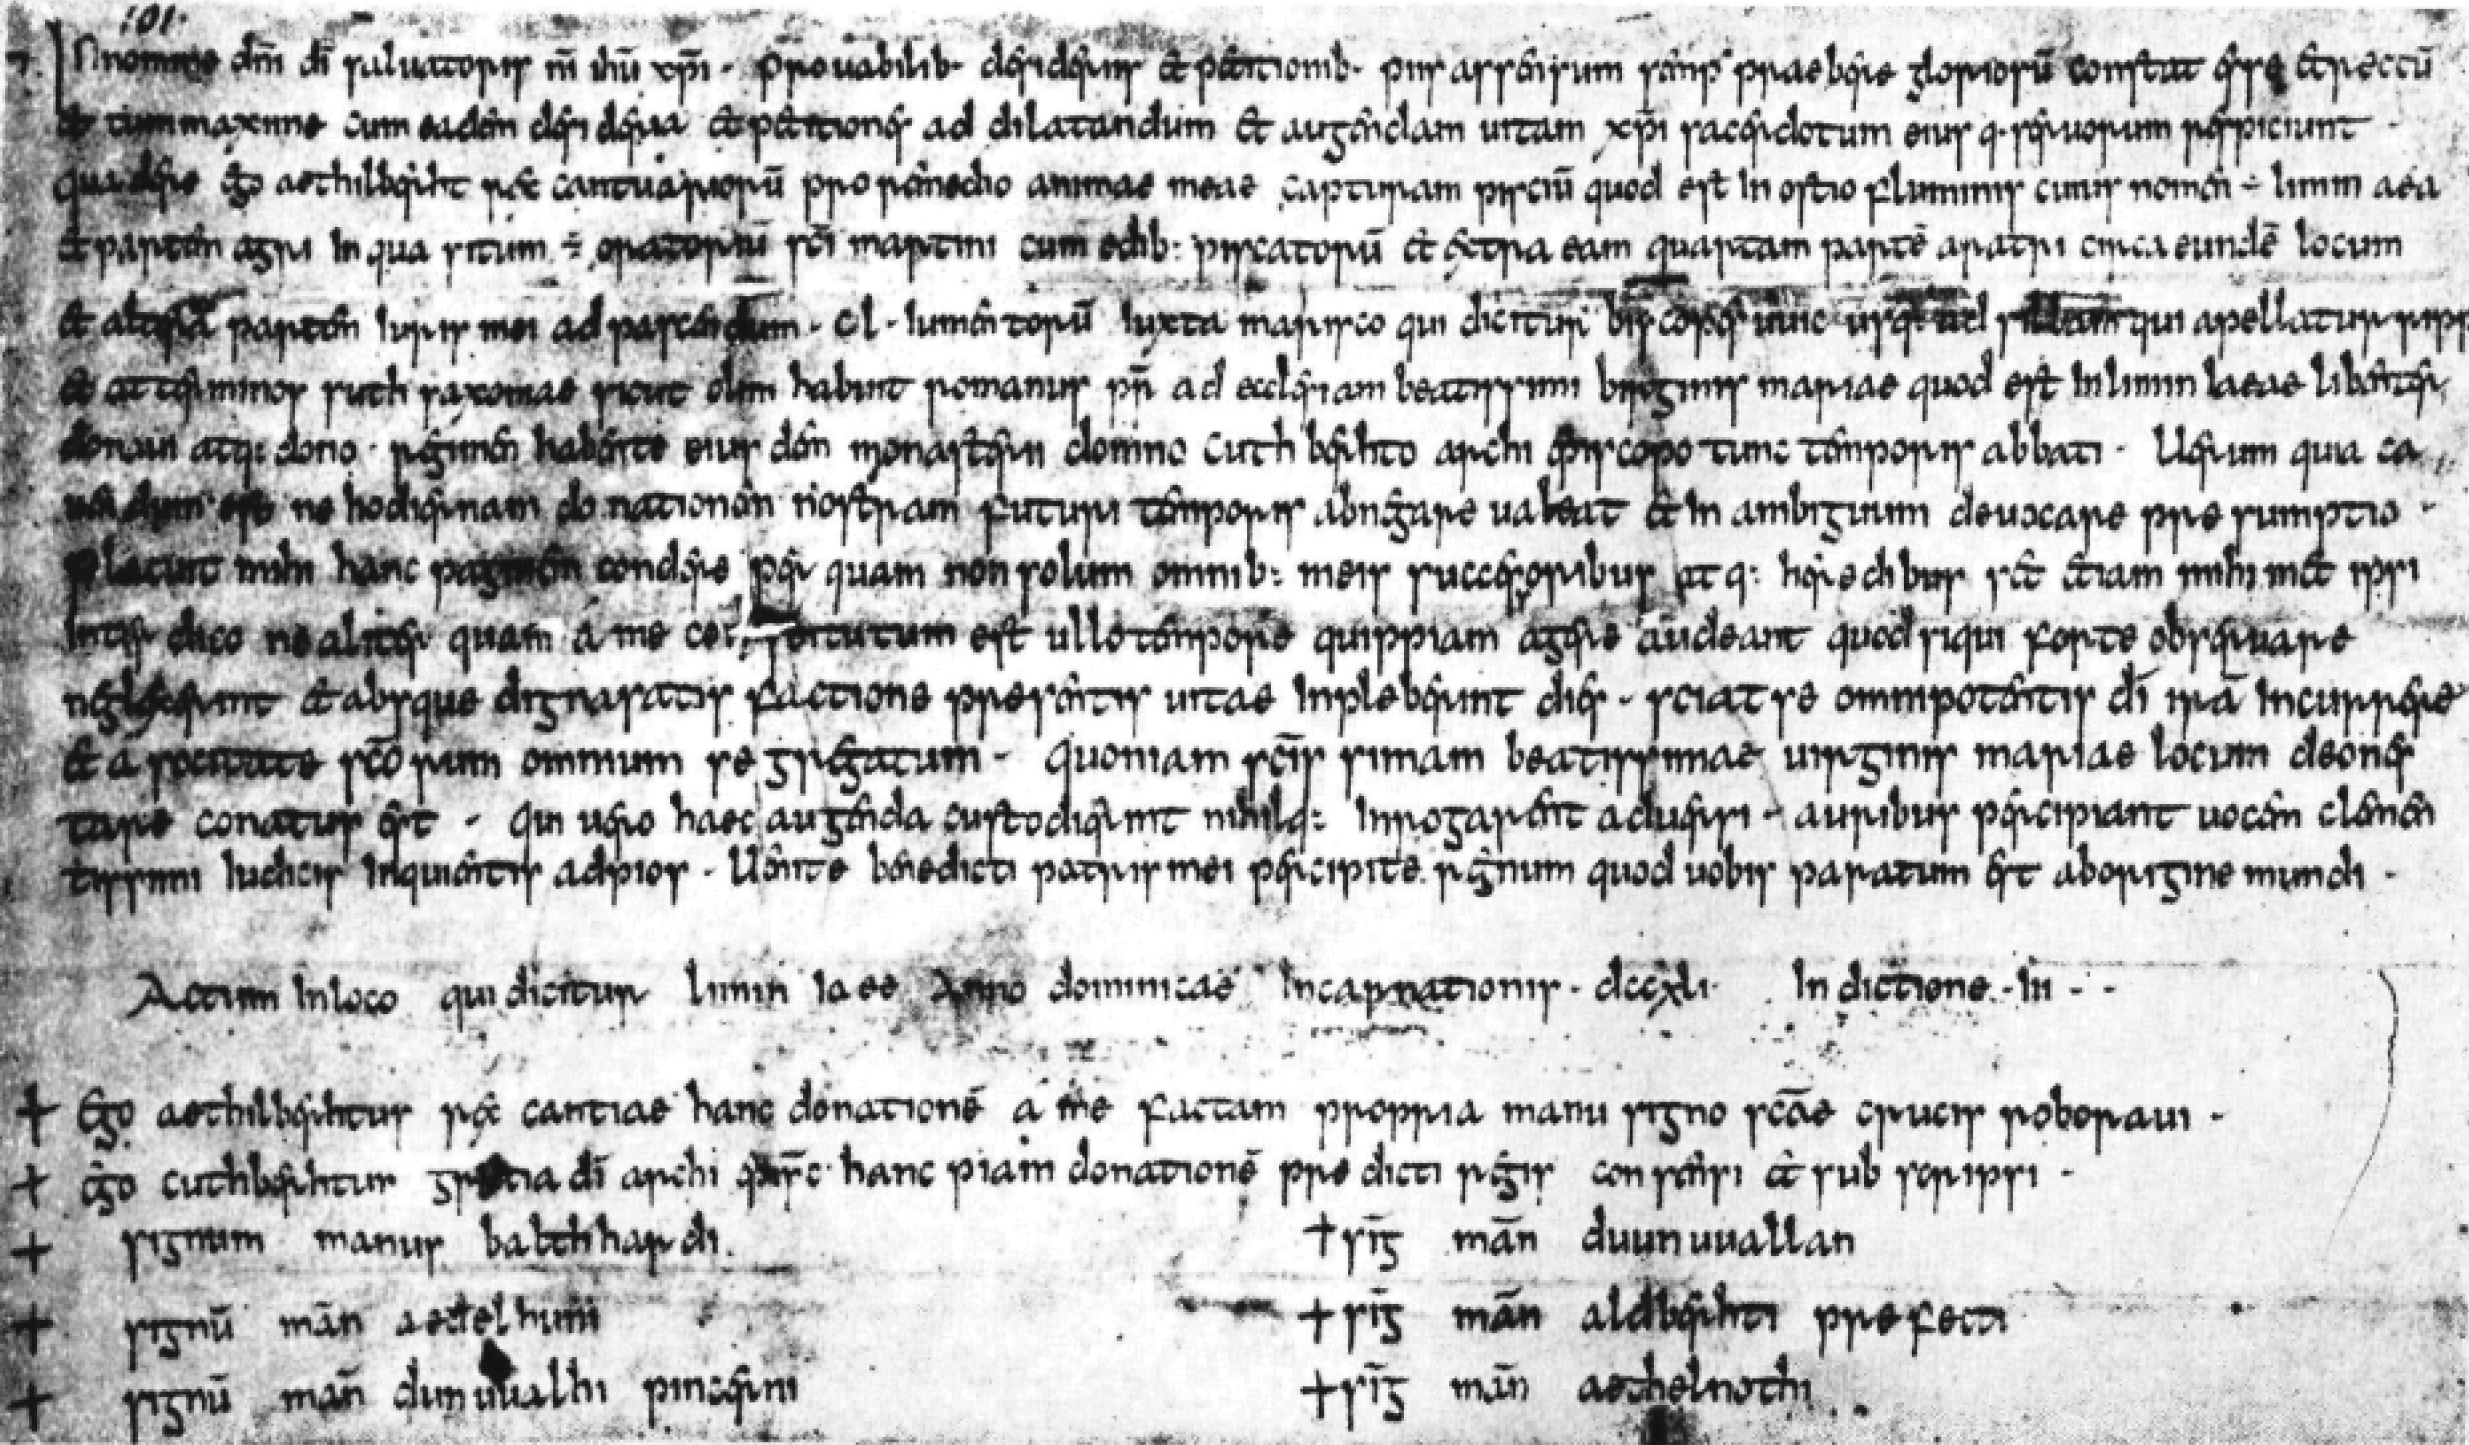 :01·
7. In nomine dn̄i dī saluatoris nr̄i ihū xp̄i · Prouabilib· desideriis et petitionib· piis assensum semp̄ praebere gloriorū constat esse et rectū
et tum maxime cum eadem desideria et petitiones ad dilatandum et augendam uitam xp̄i sacerdotum eius q· seruorum respiciunt ·
quadere ego aethilberht rex cantuariorū pro remedio animae meae capturam pisciū quod est In ostio fluminis cuius nomen ÷ limin aea
et partem agri In qua situm ÷ oratoriū sc̄i martini cum edib: piscatorū et extra eam quartam partē aratri circa eundē locum
et alterā partem Iuris mei ad pascendum · cl · Iumentorū Iuxta marisco qui dicitur biscopes uuic usq: ad qui apellatur ripp
et at terminos suth saxoniae sicut olim habuit romanus pr̄ ad ecclesiam beatissimi birginis mariae quod est In limin Iaeae libenter
donaui atq: dono · regimen habente eius dem monasterii domino cuth berhto archi episcopo tunc temporis abbati · Uerum quia ca
uendum est ne hodiernam do nationem nostram futuri temporis abnegare ualeat et In ambiguum deuocare pre sumptio ·
placuit mihi hanc paginam condere per quam non solum omnib: meis successoribus at q: heredibus set etiam mihi met ipsi
Inter dico ne aliter quam á me con stitutum est ullo tempore quippiam agere audeant quod siqui forte obseruare
neglexerint et absque digna satis factione presentis uitae Inpleberint dies · sciat se omnipotentis dī irā Incurrere
et a socitate sc̄orum omnium se gregatum · Quoniam sc̄is simam beatissimae uirginis mariae locum deones
tare conatus est · Qui uero haec augenda custodierint nihilq: Inrogarent aduersi · auribus percipiant uocem clemen
tissimi Iudicis Inquientis ad pios · Uenite benedicti patris mei percipite regnum quod uobis paratum est ab origine mundi ·
Actum In loco qui dicitur limin Iaee Anno dominicae Incarnationis · dccxli· In dictione · III · -
+ Ego aethilberhtus rex cantiae hanc donationē á me factam propria manu signo sc̄ae crucis roboraui ·
+ ego cuthberhtus gratia dī archi episc̄· hanc piam donationē pre dicti regis con sensi et sub scripsi ·
+ signum manus balthhardi. +sīg mān duunuuallan
+ signū mān aethelhuni +sīg mān aldberhti prefecti
+ signū mān dunuualhi pincerni +sīg mān aethelnothi